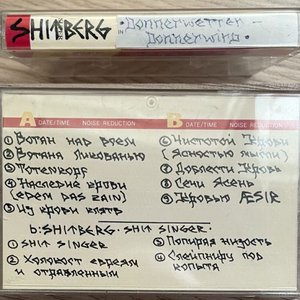 SHITBERG
IN
Donnerwetter -
Donnerwird
A DATE/TIME NOISE REDUCTION
① Вотан над всем
② Вотана Ликованью
③ Totenkopf
④ Наследие крови
(едем das zain)
⑤ Из крови клятв
B DATE/TIME NOISE REDUCTION
⑥ Чистотой Крови
(Ясностью мысли)
⑦ Доблести Кровь
⑧ Сени Ясень
⑨ Кровью ÆSIR
b: SHITBERG · SHIT SINGER ·
① SHIT SINGER
② Холокост евреям
и отравленным
③ Попирая жидость
④ Слейпниру под
копыта